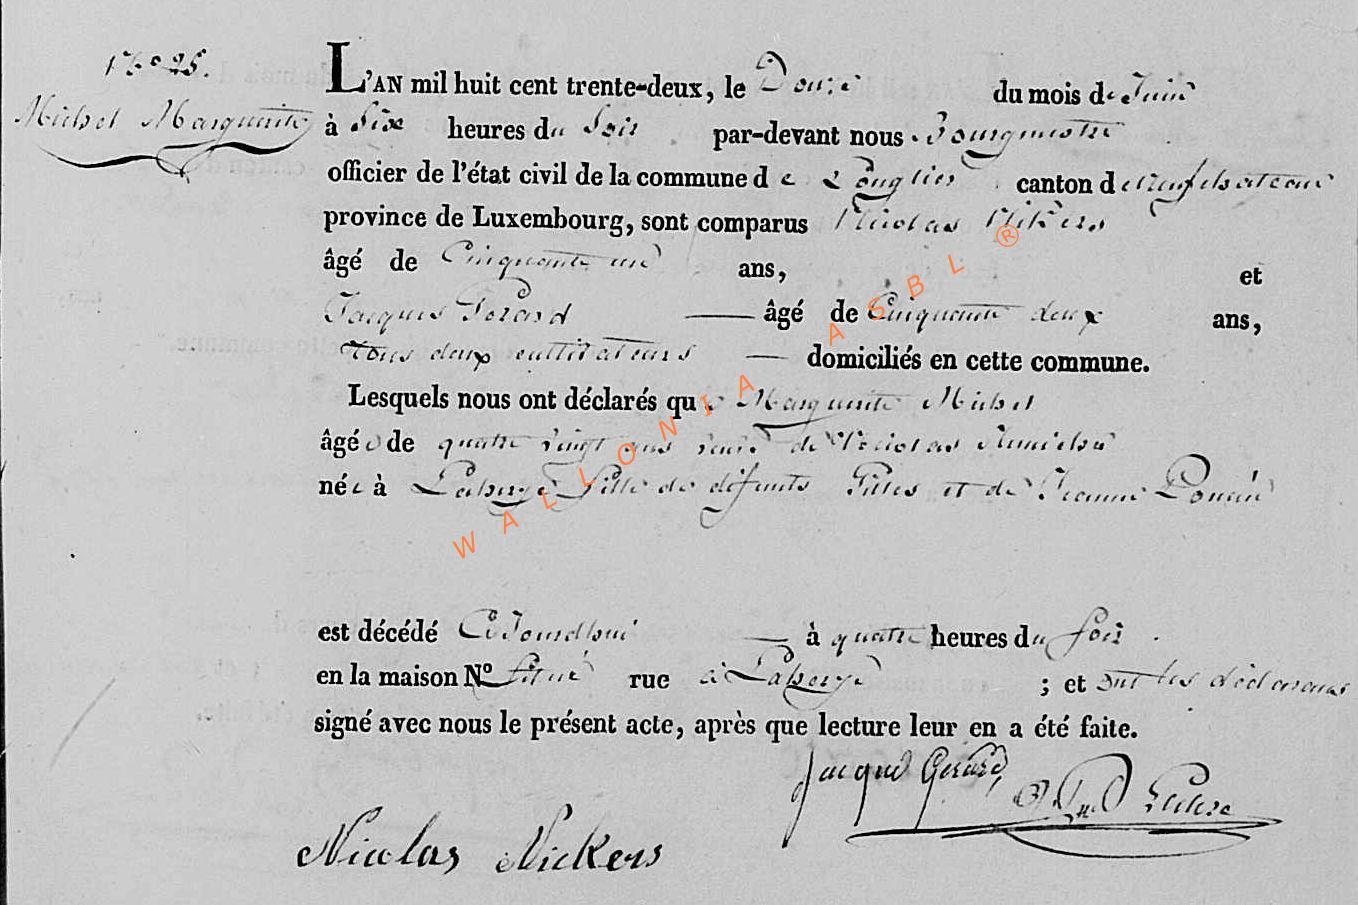 N° 25.
Michel Marguerite
L'AN mil huit cent trente-deux, le Douze du mois de Juin
à Six heures du Soir par-devant nous Bourgmestre
officier de l'état civil de la commune de Longlier canton de Neufchateau
province de Luxembourg, sont comparus Nicolas Nikers
âgé de Cinquante un ans, et
Jacques Gerard âgé de Cinquante deux ans,
tous deux cultivateurs domiciliés en cette commune.
Lesquels nous ont déclarés que Marguerite Michel
âgée de quatre vingt ans veuve de Nicolas
née à Laherie Fille de défunts Gilles et de Jeanne
est décédé Ce Jourdhui à quatre heures du soir.
en la maison N° située rue à Laherie ; et ont les déclarans
signé avec nous le présent acte, après que lecture leur en a été faite.
Jacque Gerard
Nicolas Nickers
WALLONIA ASBL ®